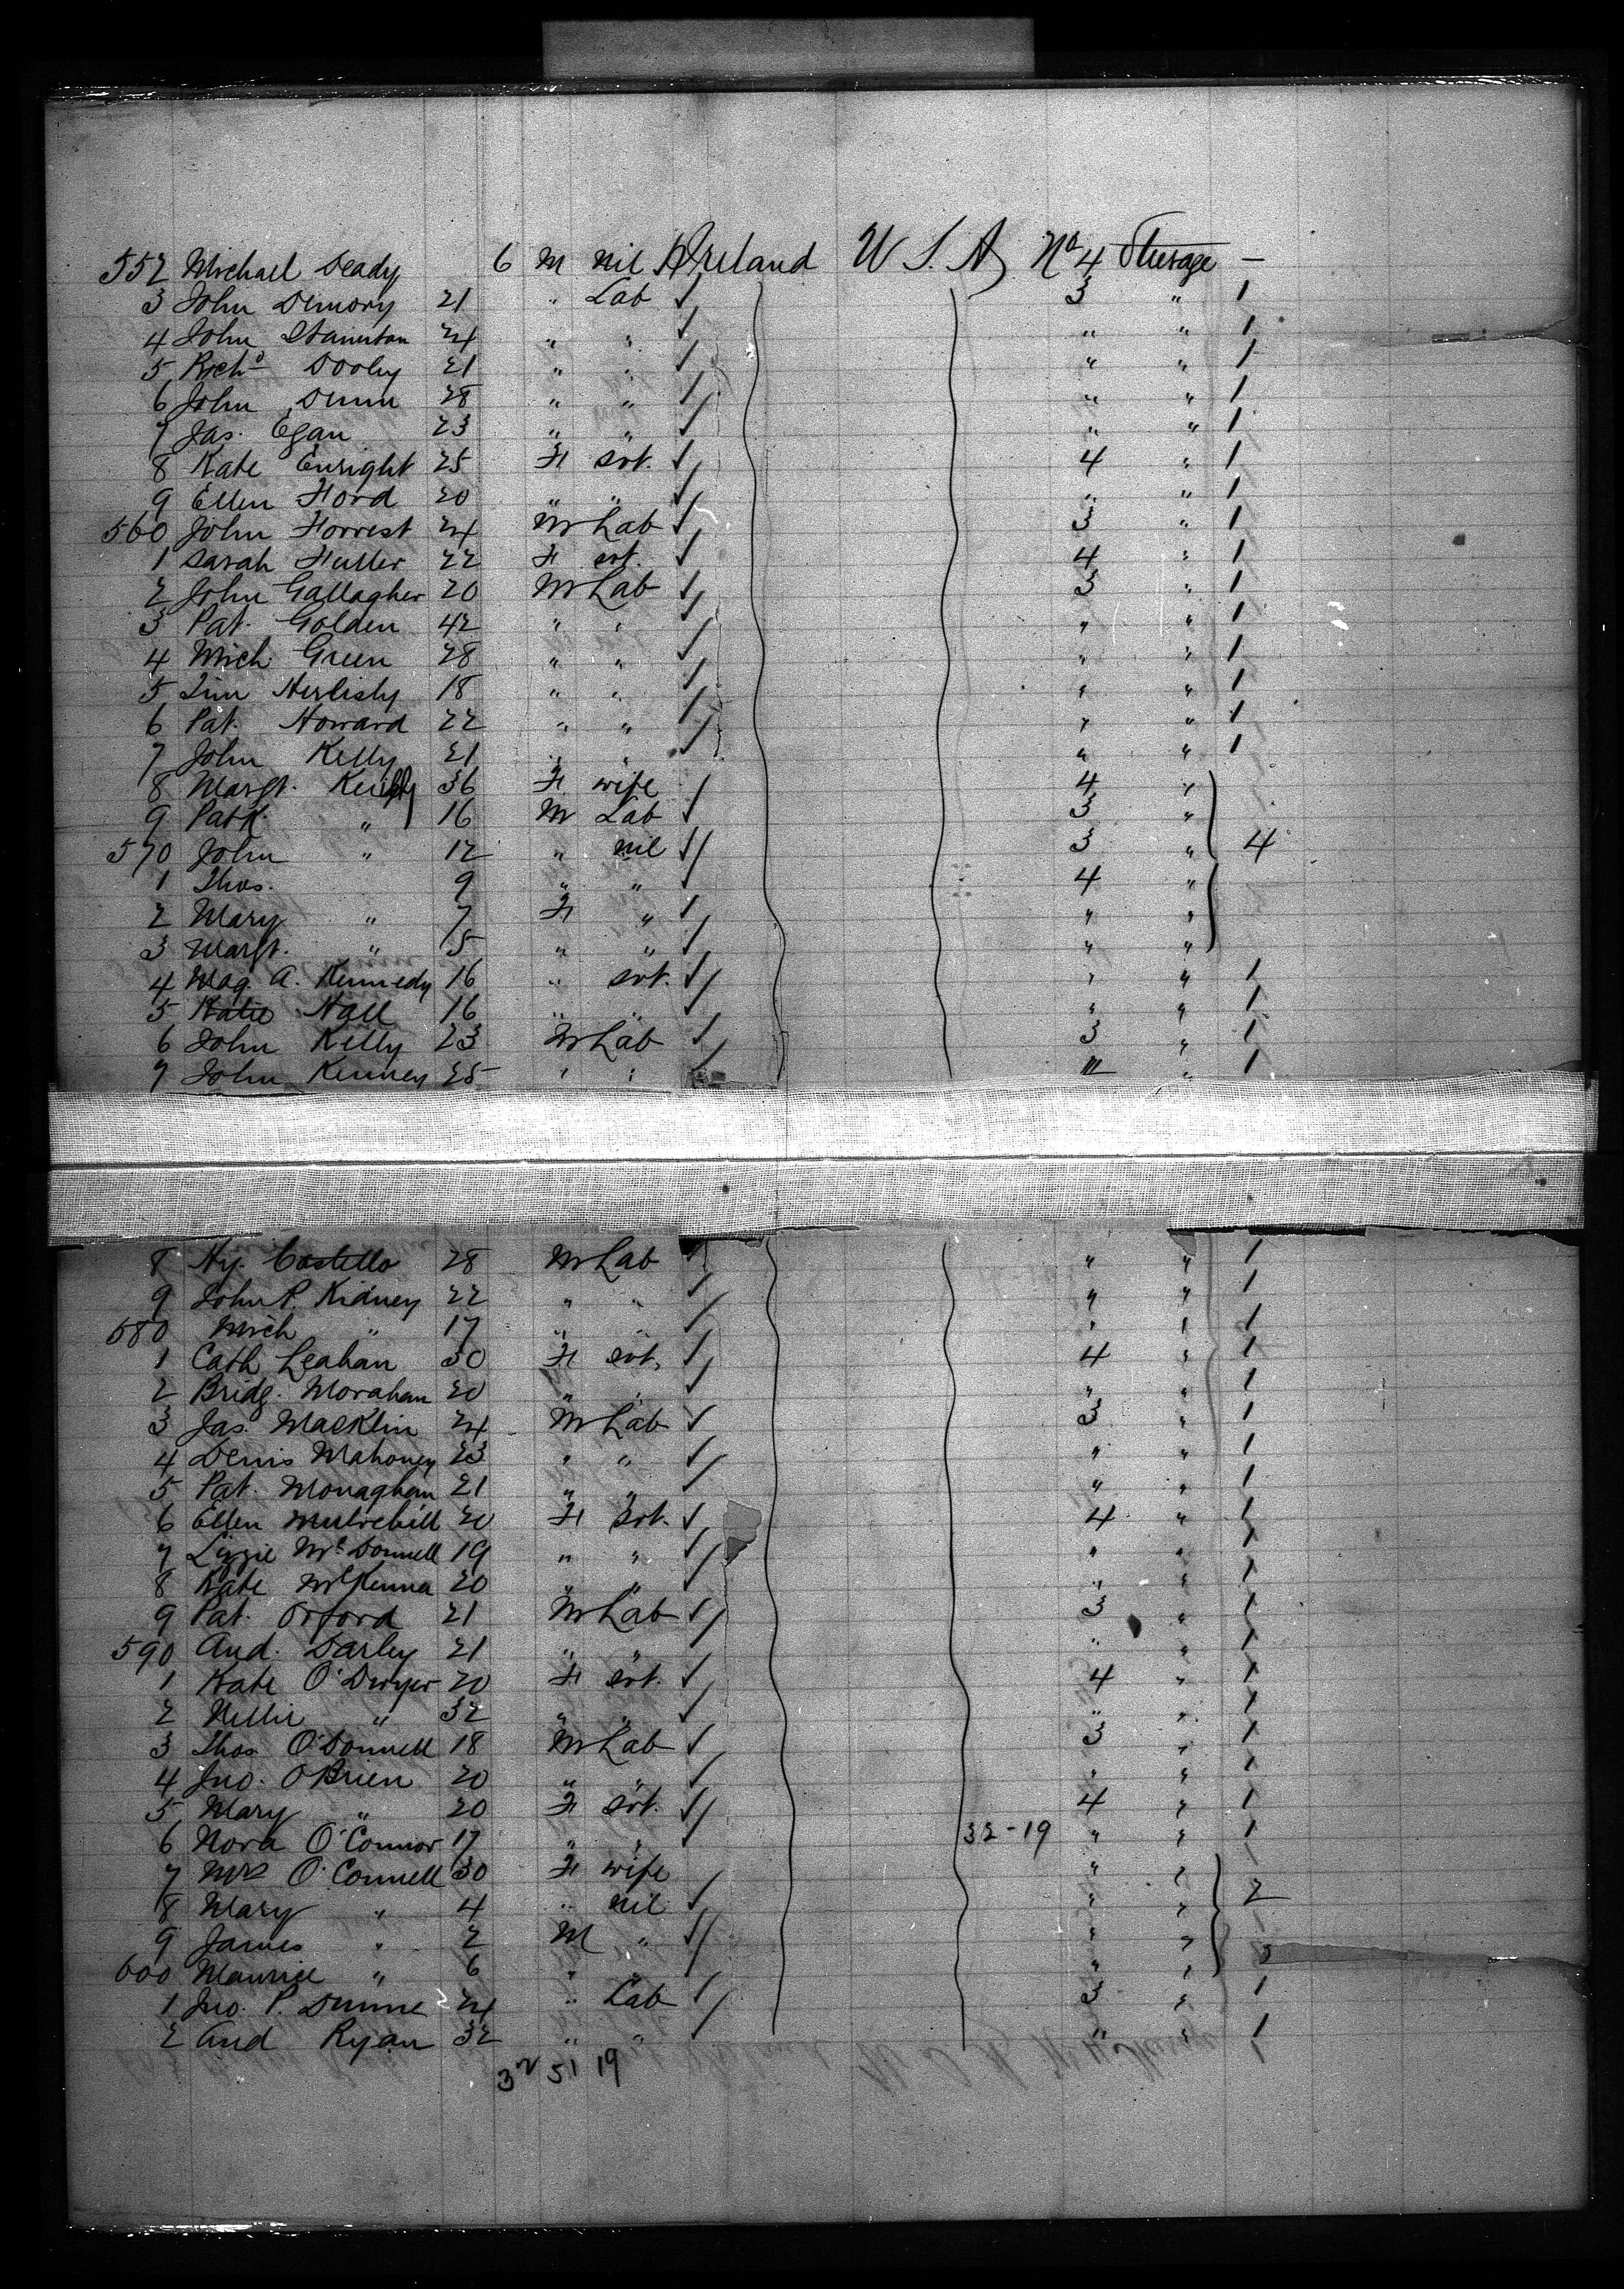 552 Michael Deady 6 M nil Ireland U S. A No 4 Steerage —
3 John Demory 21 " Lab 3 " 1
4 John Staunton 24 " " " " 1
5 Richd Dooly 21 " " " " 1
6 John Dunn 28 " " " " 1
7 Jas. Egan 23 " " " " 1
8 Kate Enright 25 F svt. 4 " 1
9 Ellen Ford 20 " " " " 1
560 John Forrest 24 M Lab 3 " 1
1 Sarah Fuller 22 F svt. 4 " 1
2 John Gallagher 20 M Lab 3 " 1
3 Pat. Golden 42 " " " " 1
4 Mich Green 28 " " " " 1
5 Tim Herlihy 18 " " " " 1
6 Pat. Howard 22 " " " " 1
7 John Kelly 21 " " " " 1
8 Margt. 36 F wife 4 "
9 Patk " 16 M Lab 3 "
570 John " 12 " nil 3 " 4
1 Thos. 9 " " 4 "
2 Mary " 7 F " " "
3 Margt. " 5 " " " "
4 Mag. A. Kennedy 16 " svt. " " 1
5 Katie Hall 16 " " " " 1
6 John Kelly 23 M Lab 3 " 1
7 John Kenney 25 " " " " 1
8 Hy. Costello 28 M Lab " " 1
9 John P. Kidney 22 " " " " 1
580 Mich " 17 " " " " 1
1 Cath Leahan 30 F svt. 4 " 1
2 Bridg. Morahan 20 " " " " 1
3 Jas. Macklin 24 M Lab 3 " 1
4 Denis Mahoney 23 " " " " 1
5 Pat. Monaghan 21 " " " " 1
6 Ellen Mulvehill 20 F svt. 4 " 1
7 Lizzie McDonnell 19 " " " " 1
8 Kate McKenna 20 " " " " 1
9 Pat. Orford 21 M Lab 3 " 1
590 And. Darley 21 " " " " 1
1 Kate O'Dwyer 20 F svt. 4 " 1
2 Nellie " 32 " " " " 1
3 Thos O'Donnell 18 M Lab 3 " 1
4 Jno. O'Brien 20 " " " " 1
5 Mary " 20 F svt. 4 " 1
6 Nora O'Connor 17 " " 32-19 " " 1
7 Mrs O'Connell 30 F wife " "
8 Mary " 4 " nil " " 2
9 James " 2 M " " "
600 Maurice " 6 " " " "
1 Jno. P. Dunne 24 " Lab 3 " 1
2 And Ryan 32 " " " " 1
32 51 19